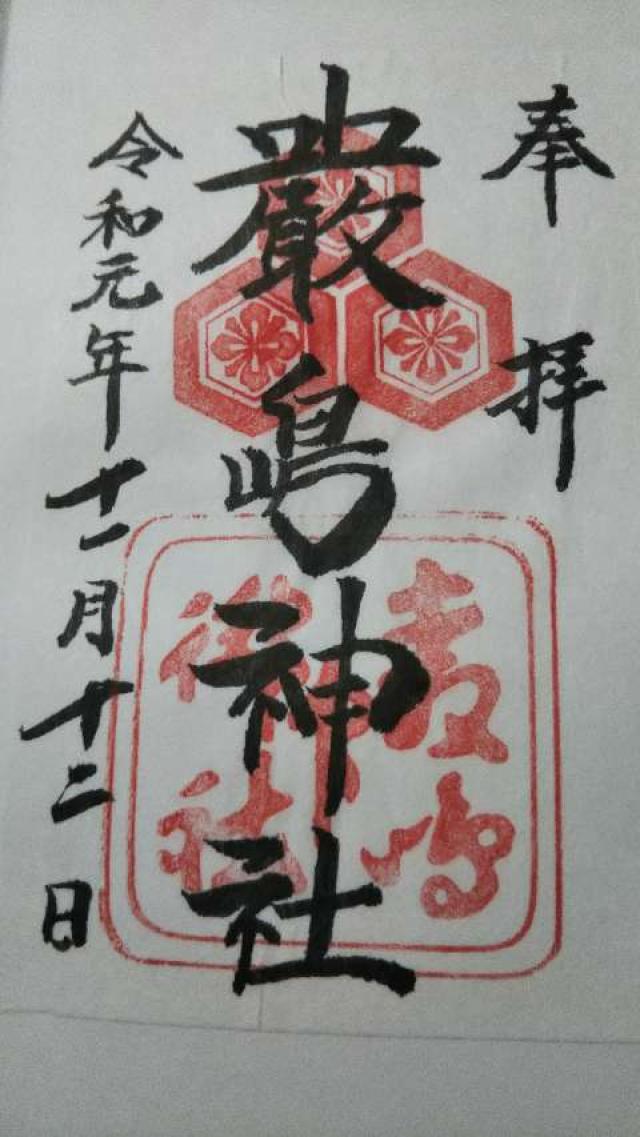 奉拝
嚴嶋神社
令和元年十一月十二日